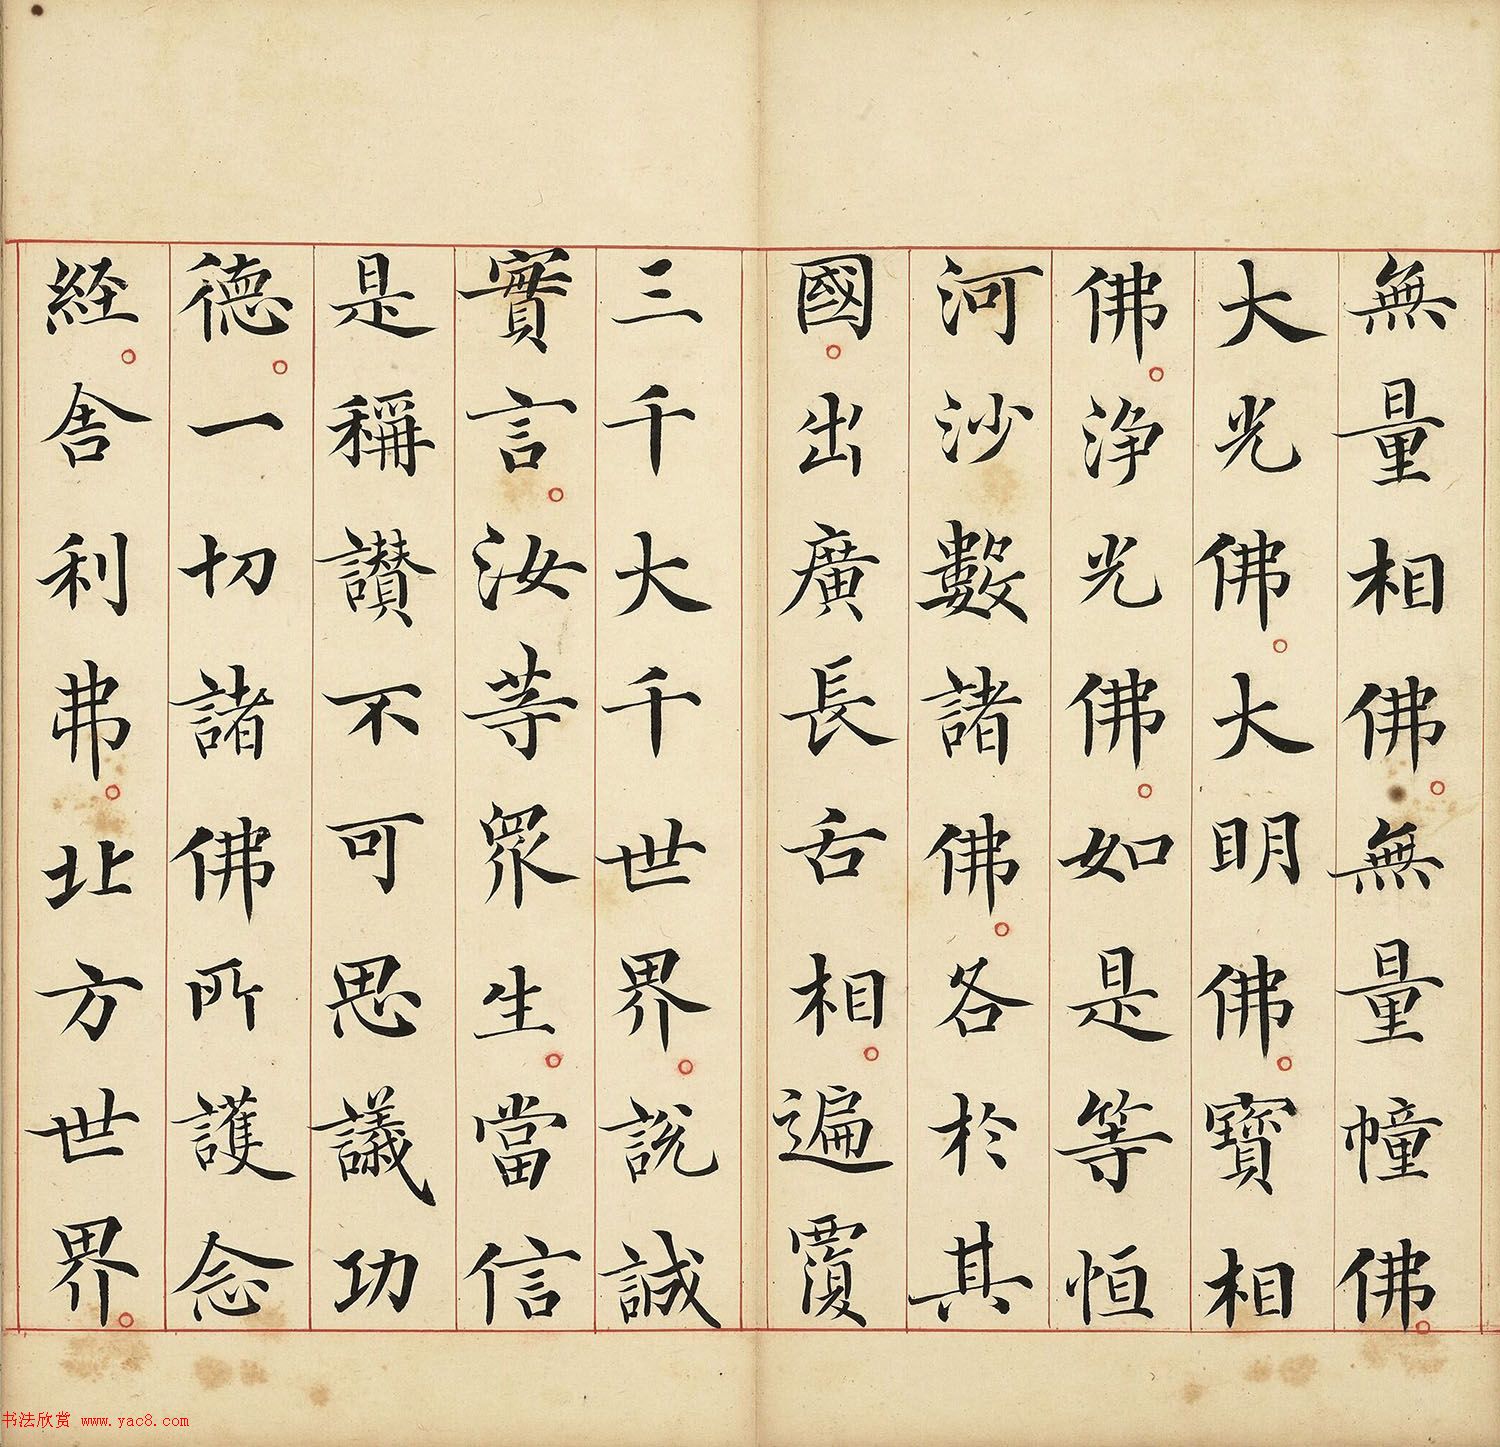 無量相佛。無量幢佛。
大光佛。大明佛。寳相
佛。淨光佛。如是等恒
河沙數諸佛。各於其
國。出廣長舌相。遍覆
三千大千世界。説誠
實言。汝等眾生。當信
是稱讃不可思議功
德。一切諸佛所護念
経。舎利弗。北方世界。
书法欣赏 www.yac8.com